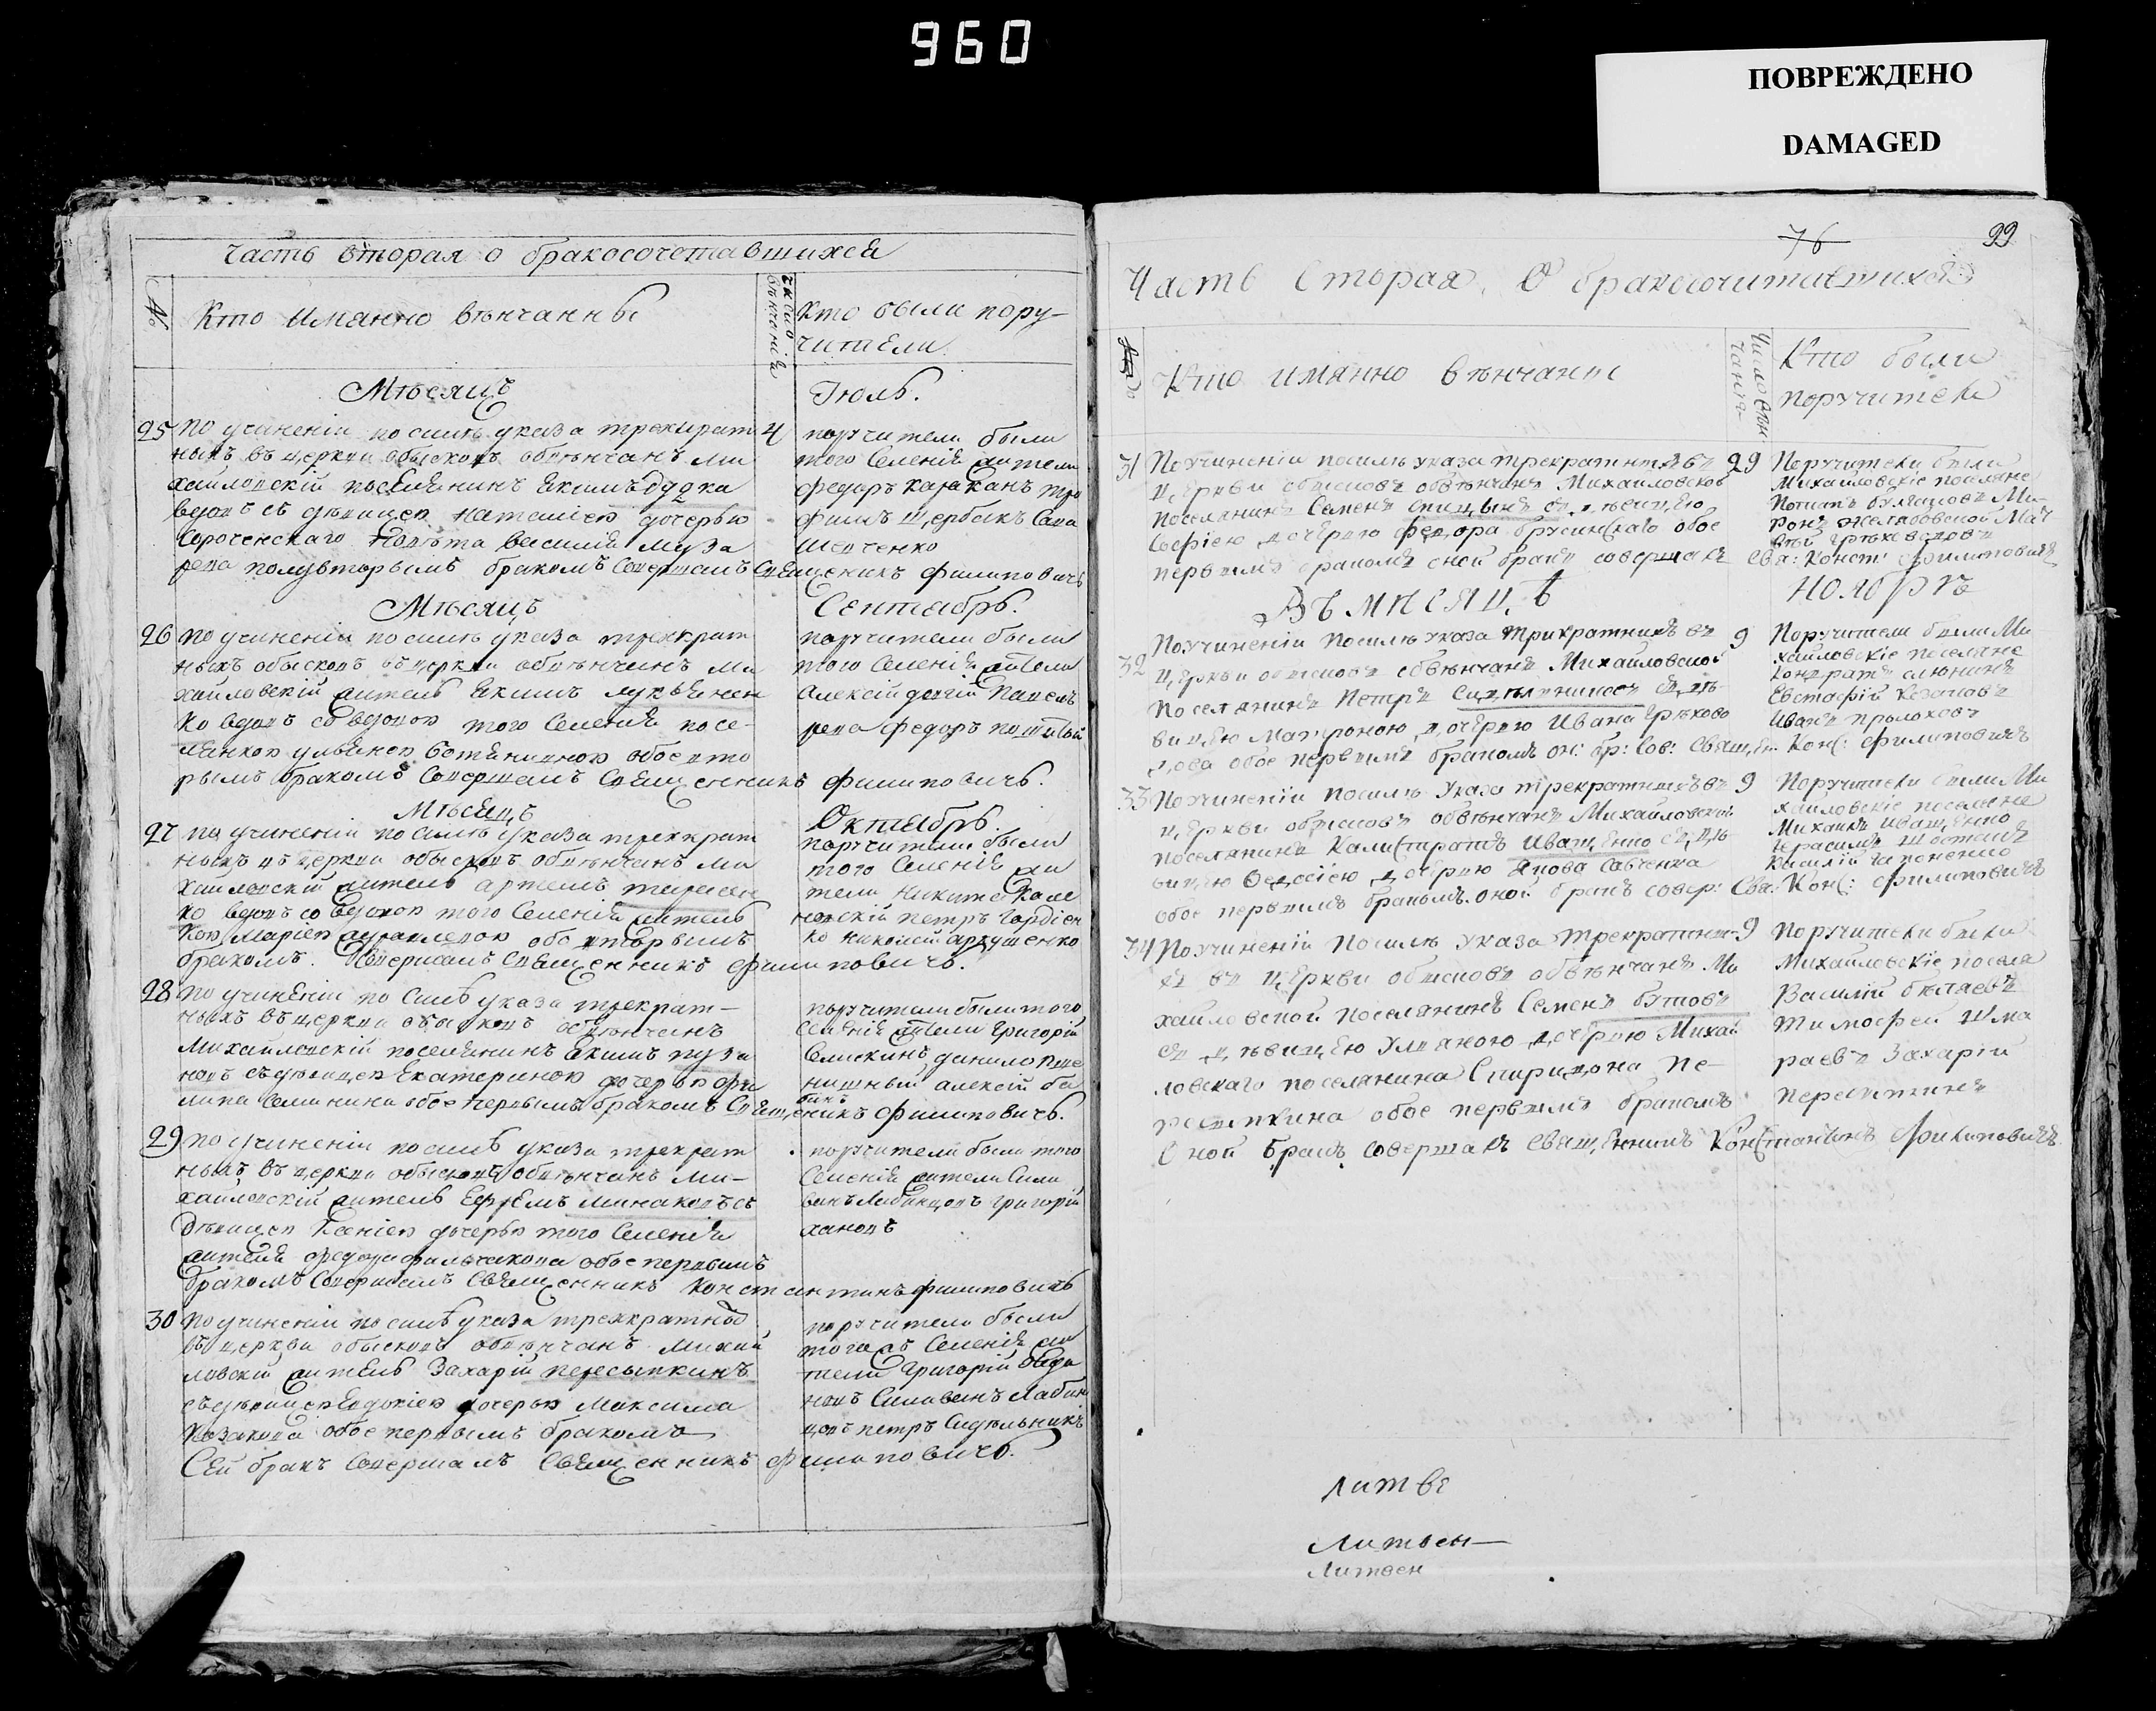 960
ПОВРЕЖДЕНО
DAMAGED
часть вторая о бракосочетавшихся
№
Кто имянно вѣнчанны
Кто были пору-
чители
Мѣсяцъ
Іюль.
25 по учиненіи по силѣ указа трекират 4
ныхъ въ церкви обысковъ обвѣнчанъ ми
хайловскій поселянинъ Екимъ дудка
вдовъ съ дѣвицею наталіею дочерью
василія муза
репа полувторымъ бракомъ совершалъ священикъ филиповичъ
поручители были
того селенія жители
федоръ каракан тро
фимъ щербакъ сава
шевченко
Мѣсяцъ
Сентябрь.
26 по учиненіи по силѣ указа треккрат
ныхъ обысковъ въ церкви обвѣнчанъ ми
хайловскій житель Екимъ лукьянен
ко вдовъ со вдовою того селенія посе-
лянкою ульяною обое вто
рымъ бракомъ совершалъ священникъ филиповичъ.
поручители были
того селенія жители
Алексій долгій павелъ
репа федоръ
Мѣсяцъ
Октябрь.
27 по учиненіи по силѣ указа треккрат
ныхъ въ церкви обысковъ обвѣнчанъ ми
хайловскій житель артемъ тарасен
ко вдовъ со вдовою того селенія житель
кою маріею обо вторымъ
бракомъ. Совершалъ священникъ филиповичъ.
поручители были
того селенія жи
тели никита кале
новскій петръ гордіен
ко николай
28 по учиненіи по силѣ указа трекрат-
ныхъ въ церкви обысковъ обвѣнчанъ
михайловскій поселянинъ Екимъ пуза
новъ съ дѣвицею Екатериною дочерью фи
липа семинина обое первымъ бракомъ священикъ филиповичъ.
поручители были того
селенія жители григорій
селикинъ данило пше
ничный алексій ба
бик
29 по учиненіи по силѣ указа трекрат
ныхъ въ церкви обысковъ обвѣнчанъ ми-
хайловскій житель Ефремъ минаковъ съ
дѣвицею дочерью того селенія
жителя федора обое первымъ
бракомъ совершалъ священникъ константинъ филиповичъ
поручители были того
селенія жители сили
ванъ лабинцовъ григорій
хановъ
30 по учиненіи по силѣ указа треккратныхъ
въ церкви обысковъ обвѣнчанъ михай
ловскій житель Захарій пересыпкинъ
съ дѣвицею Евдокіею дочерью максима
казакова обое первымъ бракомъ
Сей бракъ совершалъ священникъ филиповичъ.
поручители были
того жъ селенія жи
тели григорій
новъ силиванъ лабин
цовъ петръ сидѣльникъ
76
99
Часть вторая, О бракосочитавшихся
Кто имянно вѣнчаны
Число вѣн
чанія
Кто были
поручители
31 По учиненіи посилѣ указа трекратныхъ въ 29
церкви обысковъ обвѣнчанъ Михайловской
поселянинъ Семенъ спицынъ съ дѣвицею
Софіею дочерью федора брусинскаго обое
первымъ бракомъ оной бракъ совершалъ Свя: Конст: филиповичъ
Поручители были
Михайловскіе поселяне
Потапъ Ми-
ронъ Мат
вѣй
Въ мисяцѣ
Ноябрѣ
32 По учиненіи посилѣ указа трикратныхъ въ 9
церкви обысковъ обвѣнчанъ Михайловской
поселянинъ Петръ сидѣльниковъ съ дѣ-
вицею Матроною дочерью Ивана Грѣхово
дова обое первымъ бракомъ он: бр: сов: Священ: Конс: филиповичъ
Поручители были Ми
хайловскіе поселяне
кондратъ
Евстафій Казаковъ
Иванъ
33 По учиненіи посилѣ указа трекратныхъ въ 9
церкви обысковъ обвѣнчанъ Михайловской
поселянинъ Калистратъ Иващенко съ дѣ-
вицею Федосіею дочерью Якова Савченка
обое первымъ бракомъ. оной бракъ совер: Свя: Конс: филиповичъ
Поручители были Ми
хайловскіе поселяне
Михаилъ Иващенко
Герасимъ
Василій Гапоненко
34 По учиненіи посилѣ указа трекратны- 9
хъ въ церкви обысковъ обвѣнчанъ Ми
хайловской поселянинъ Семенъ бутовъ
съ дѣвицею Ульяною дочерью Михай
ловскаго поселянина Спиридона Пе-
ресыпкина обое первымъ бракомъ.
Оной бракъ совершалъ священникъ Константинъ филиповичъ
Поручители были
Михайловскіе посѣля
Василій бѣляевъ
Тимофей Шма
раевъ Захарій
Пересыпкинъ
литвє
Литвен—
Литвен